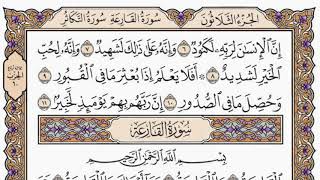 الجزء الثلاثون سورة القارعة سورة التكاثر
إِنَّ ٱلْإِنسَٰنَ لِرَبِّهِۦ لَكَنُودٌ ٦ وَإِنَّهُۥ عَلَىٰ ذَٰلِكَ لَشَهِيدٌ ٧ وَإِنَّهُۥ لِحُبِّ
ٱلْخَيْرِ لَشَدِيدٌ ٨ أَفَلَا يَعْلَمُ إِذَا بُعْثِرَ مَا فِى ٱلْقُبُورِ ٩
وَحُصِّلَ مَا فِى ٱلصُّدُورِ ١٠ إِنَّ رَبَّهُم بِهِمْ يَوْمَئِذٍ لَّخَبِيرٌۢ ١١
سُورَةُ القَارِعَة
بِسْمِ ٱللَّهِ ٱلرَّحْمَٰنِ ٱلرَّحِيمِ